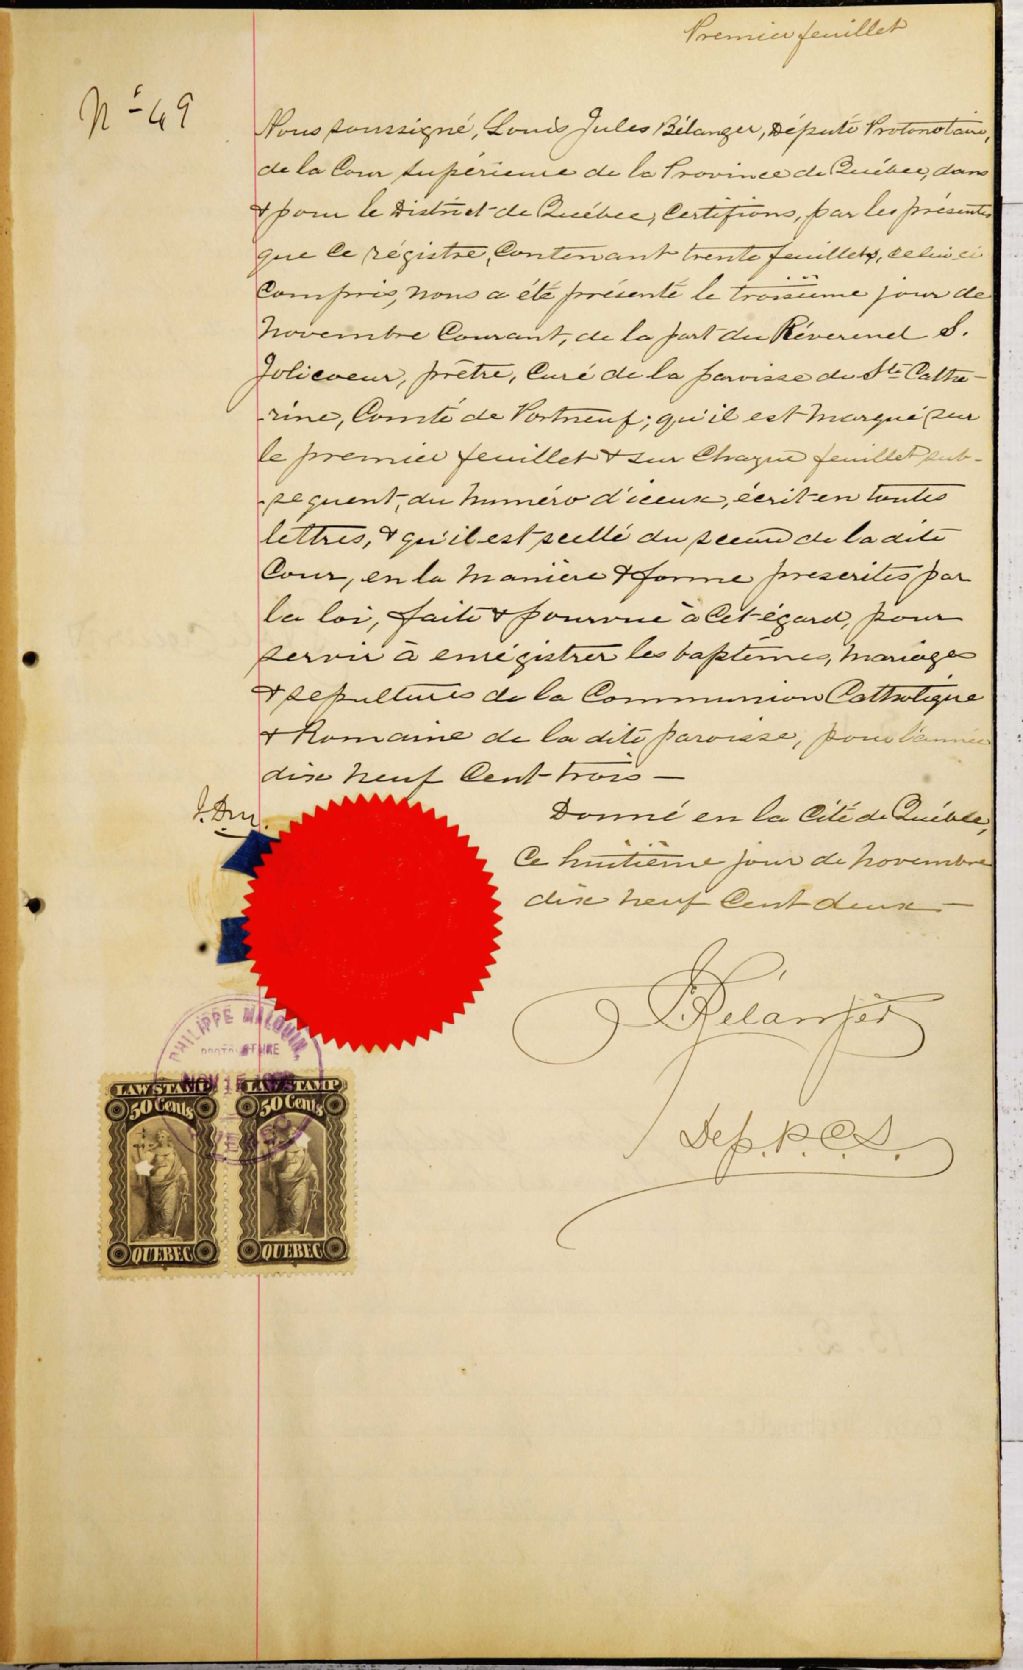 Premier feuillet
No 49
Nous soussigné, Louis Jules Bélanger, Député Protonotaire,
de la Cour Supérieure de la Province de Québec, dans
& pour le District de Québec, Certifions, par les présentes
que ce régistre, contenant trente feuillets, celui ci
compris, nous a été présenté le troisième jour de
Novembre courant, de la part du Révérend S.
Jolicoeur, prêtre, Curé de la paroisse de Ste Cathe-
-rine, Comté de Portneuf; qu'il est marqué sur
le premier feuillet & sur chaque feuillet sub-
-sequent, du numéro d'iceux, écrit en toutes
lettres, & qu'il est scellé du sceau de la dite
Cour, en la manière & forme prescrites par
la loi, faite & pourvue à cet égard, pour
servir à enrégistrer les baptêmes, mariages
& sepultures de la Communion Catholique
& Romaine de la dite paroisse, pour l'année
dix neuf cent trois —
Donné en la Cité de Québec,
ce huitième jour de novembre
dix neuf cent deux —
J. Bélanger
Dep. P. C. S.
PHILIPPE MALOUIN,
PROTONOTAIRE
NOV 15
QUEBEC
LAW STAMP LAW STAMP
50 Cents 50 Cents
QUEBEC QUEBEC